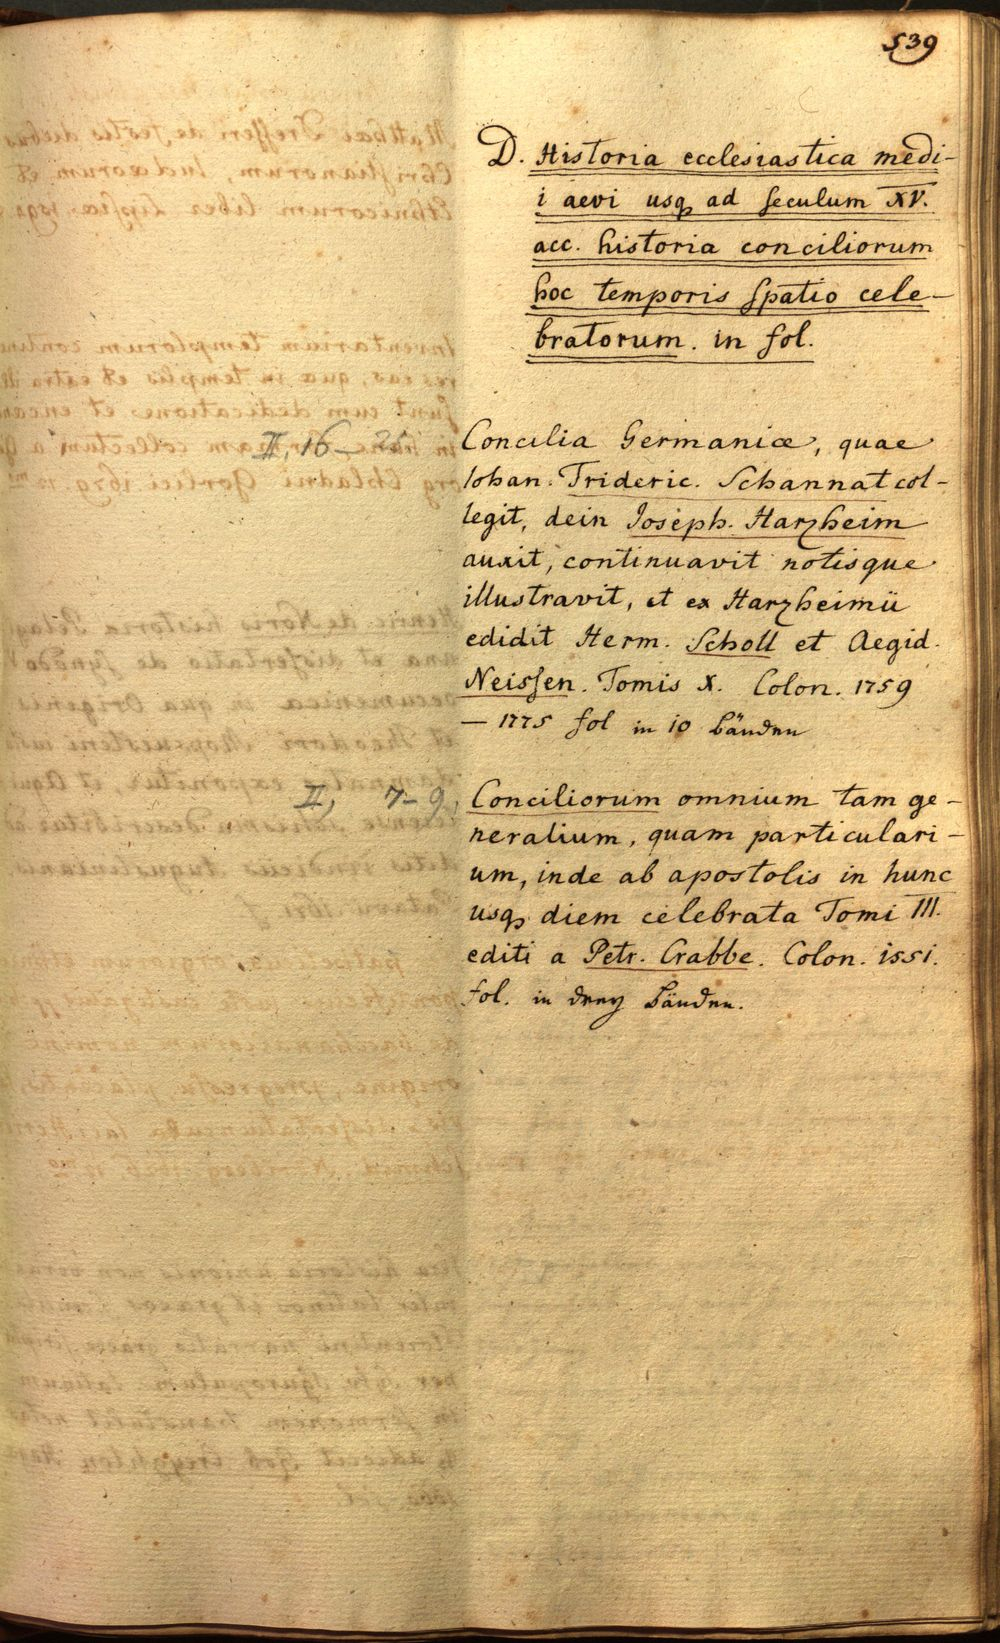 539
D. Historia ecclesiastica medi-
i aevi usq ad seculum XV.
acc. historia conciliorum
hoc temporis spatio cele-
bratorum. in fol.
II, 16-25 Concilia Germaniæ, quae
Iohan. Frideric. Schannat col-
legit, dein Joseph. Harzheim
auxit, continuavit notisque
illustravit, et ex Harzheimii
edidit Herm. Scholl et Aegid.
Neissen. Tomis X. Colon. 1759
— 1775 fol in 10 Bänden
II, 7-9, Conciliorum omnium tam ge-
neralium, quam particulari-
um, inde ab apostolis in hunc
usq diem celebrata Tomi III.
editi a Petr. Crabbe. Colon. 1551.
fol. in drey Bänden.